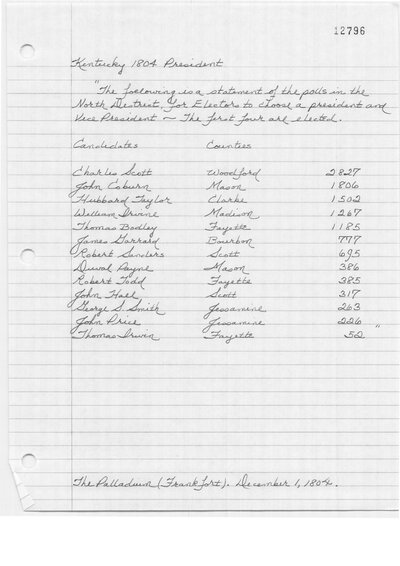 12796
Kentucky 1804 President
"The following is a statement of the polls in the
North District, for Electors to choose a president and
Vice President ~ The first four are elected.
Candidates Counties
Charles Scott Woodford 2827
John Coburn Mason 1806
Hubbard Taylor Clarke 1502
William Irvine Madison 1267
Thomas Bodley Fayette 1185
James Garrard Bourbon 777
Robert Sanders Scott 695
Duval Payne Mason 386
Robert Todd Fayette 385
John Hall Scott 317
George S. Smith Jessamine 263
John Price Jessamine 226
Thomas Irwin Fayette 52 "
The Palladium (Frankfort). December 1, 1804.